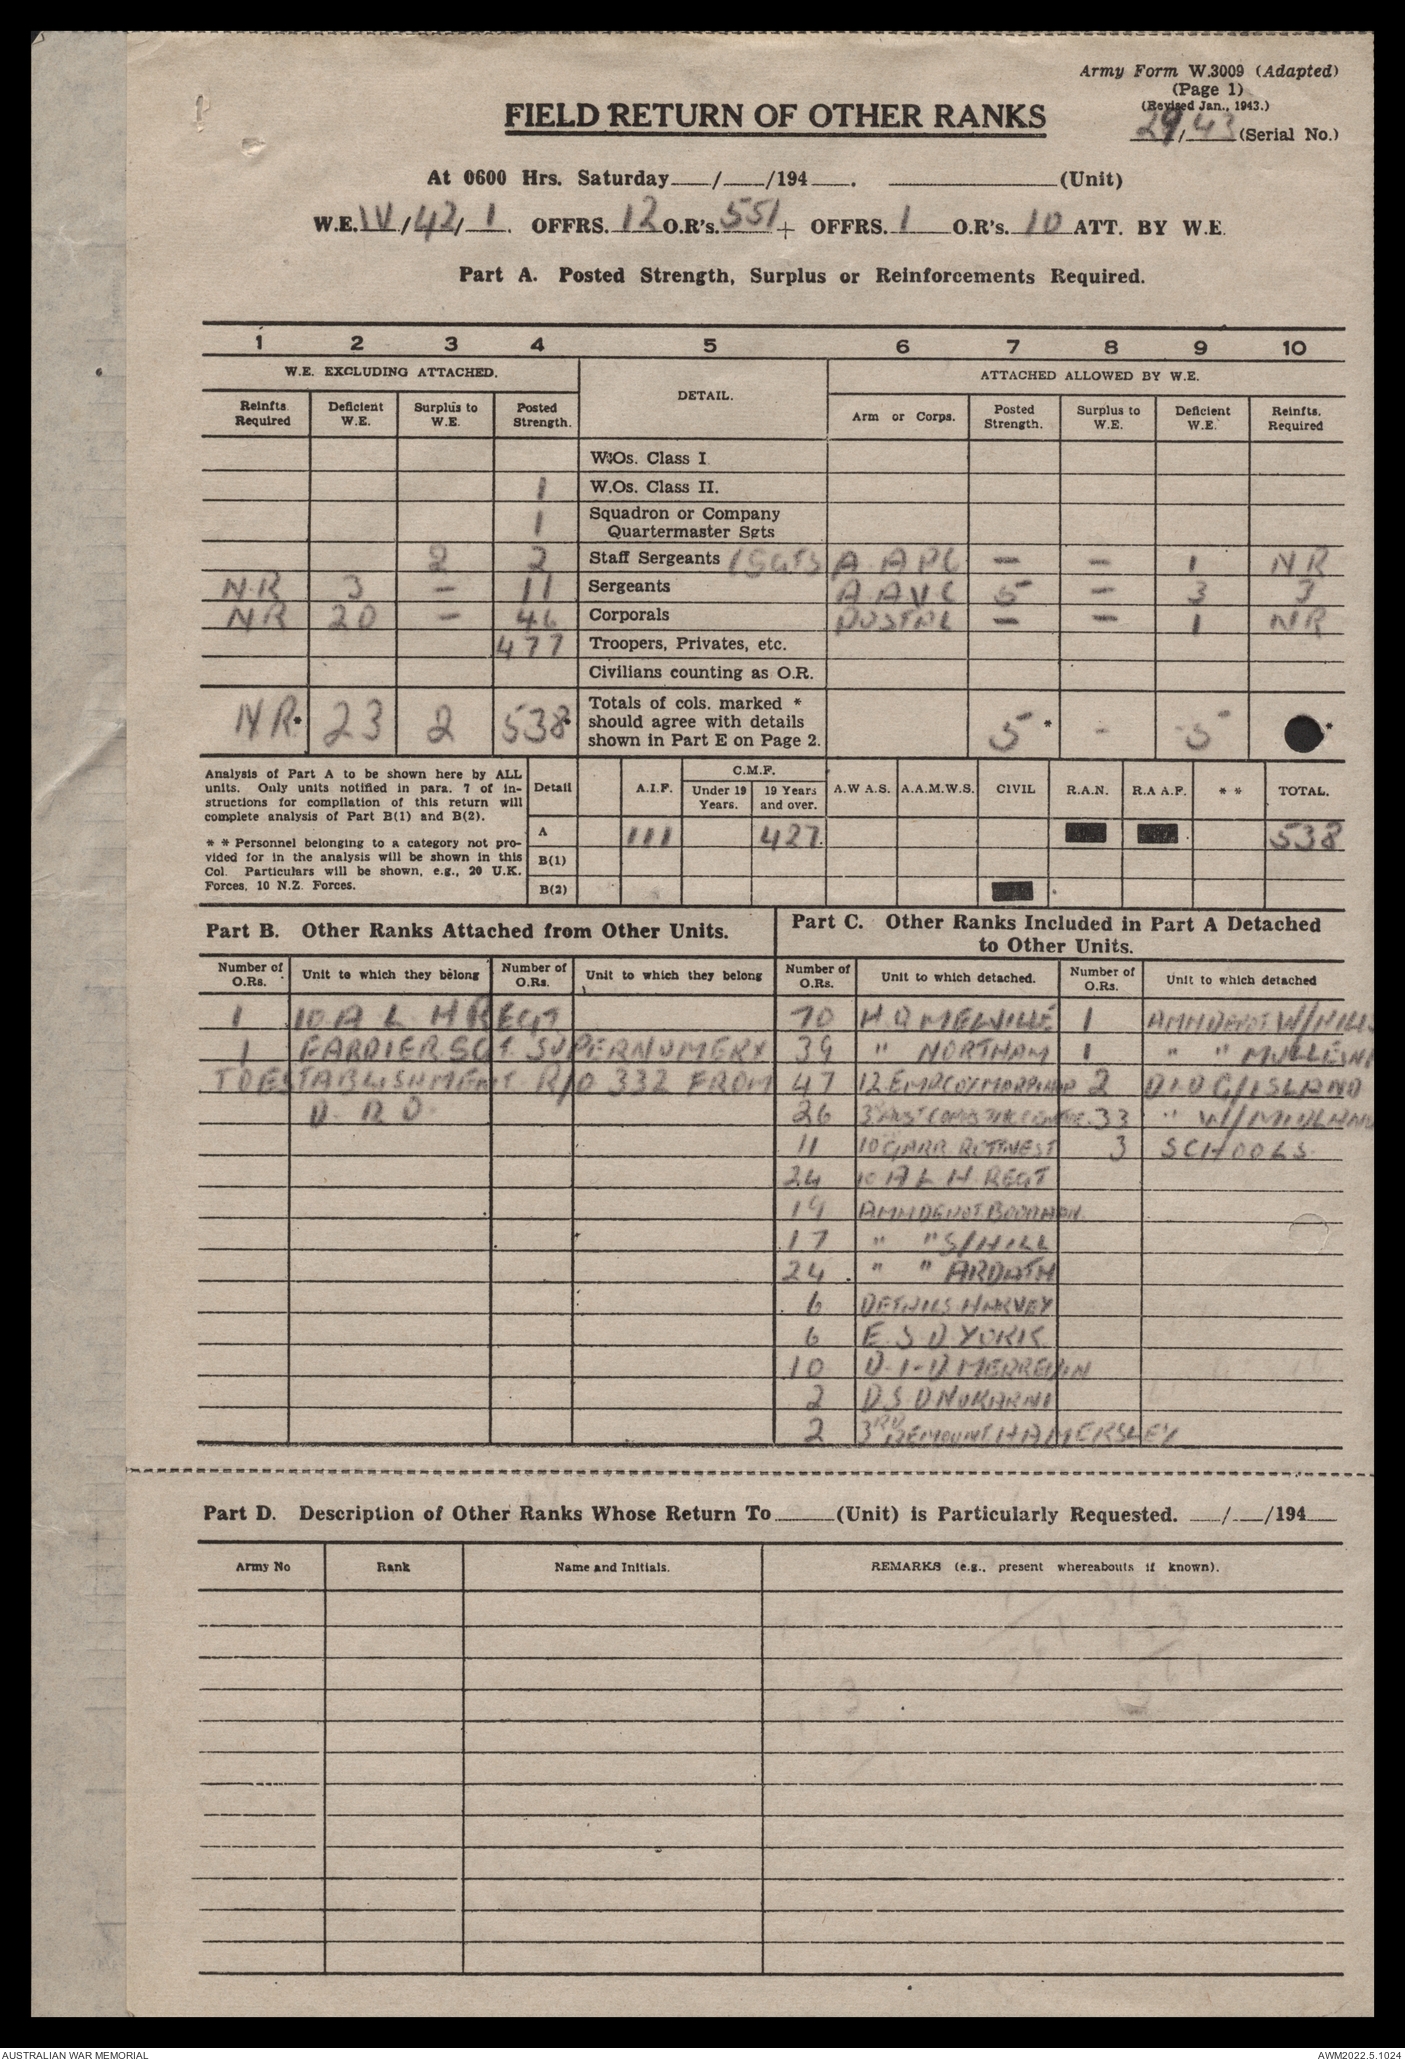 Army Form W.3009 (Adapted)
(Page 1)
(Revised Jan., 1943.)
29/43 (Serial No.)
FIELD RETURN OF OTHER RANKS
At 0600 Hrs. Saturday / /194 . (Unit)
W.E. IV/42/1. OFFRS. 12 O.R's. 551 + OFFRS. 1 O.R's. 10 ATT. BY W.E.
Part A. Posted Strength, Surplus or Reinforcements Required.
1 2 3 4 5 6 7 8 9 10
W.E. EXCLUDING ATTACHED. DETAIL. ATTACHED ALLOWED BY W.E.
Reinfts. Required Deficient W.E. Surplus to W.E. Posted Strength. Arm or Corps. Posted Strength. Surplus to W.E. Deficient W.E. Reinfts. Required
W.Os. Class I
1 W.Os. Class II.
1 Squadron or Company Quartermaster Sgts
2 2 Staff Sergeants / SGTS A.A.P.C - - 1 NR
N.R 3 - 11 Sergeants A.A.V.C 5 - 3 3
NR 20 - 46 Corporals POSTAL - - 1 NR
477 Troopers, Privates, etc.
Civilians counting as O.R.
NR* 23 2 538* Totals of cols. marked * should agree with details shown in Part E on Page 2. 5* - 5 *
Analysis of Part A to be shown here by ALL
units. Only units notified in para. 7 of in-
structions for compilation of this return will
complete analysis of Part B(1) and B(2).
* * Personnel belonging to a category not pro-
vided for in the analysis will be shown in this
Col. Particulars will be shown, e.g., 20 U.K.
Forces, 10 N.Z. Forces.
Detail A.I.F. C.M.F. Under 19 Years. 19 Years and over. A.W.A.S. A.A.M.W.S. CIVIL R.A.N. R.A.A.F. * * TOTAL.
A 111 427 538
B(1)
B(2)
Part B. Other Ranks Attached from Other Units.
Number of O.Rs. Unit to which they belong Number of O.Rs. Unit to which they belong
1 10 A L H REGT
1 FARRIER SGT SUPERNUMERY
TO ESTABLISHMENT R/O 332 FROM
D.R.O.
Part C. Other Ranks Included in Part A Detached
to Other Units.
Number of O.Rs. Unit to which detached. Number of O.Rs. Unit to which detached
70 H.Q MELVILLE 1 AMMDEPOT W/HILLS
39 " NORTHAM 1 " "
47 12 EMP COY 2 D.I.D G/ISLAND
26 33 " W/MIDLAND
11 10 GARR ROTTNEST 3 SCHOOLS
24 10 A L H REGT
19 AMMDEPOT
17 " " S/HILL
24 " " ARDATH
6 DETAILS HARVEY
6 E.S.D YORK
10 D.I.D MERREDIN
2 D.S.D NUKARNI
2 3RD REMOUNT HAMERSLEY
Part D. Description of Other Ranks Whose Return To (Unit) is Particularly Requested. / /194
Army No Rank Name and Initials. REMARKS (e.g., present whereabouts if known).
AUSTRALIAN WAR MEMORIAL AWM2022.5.1024